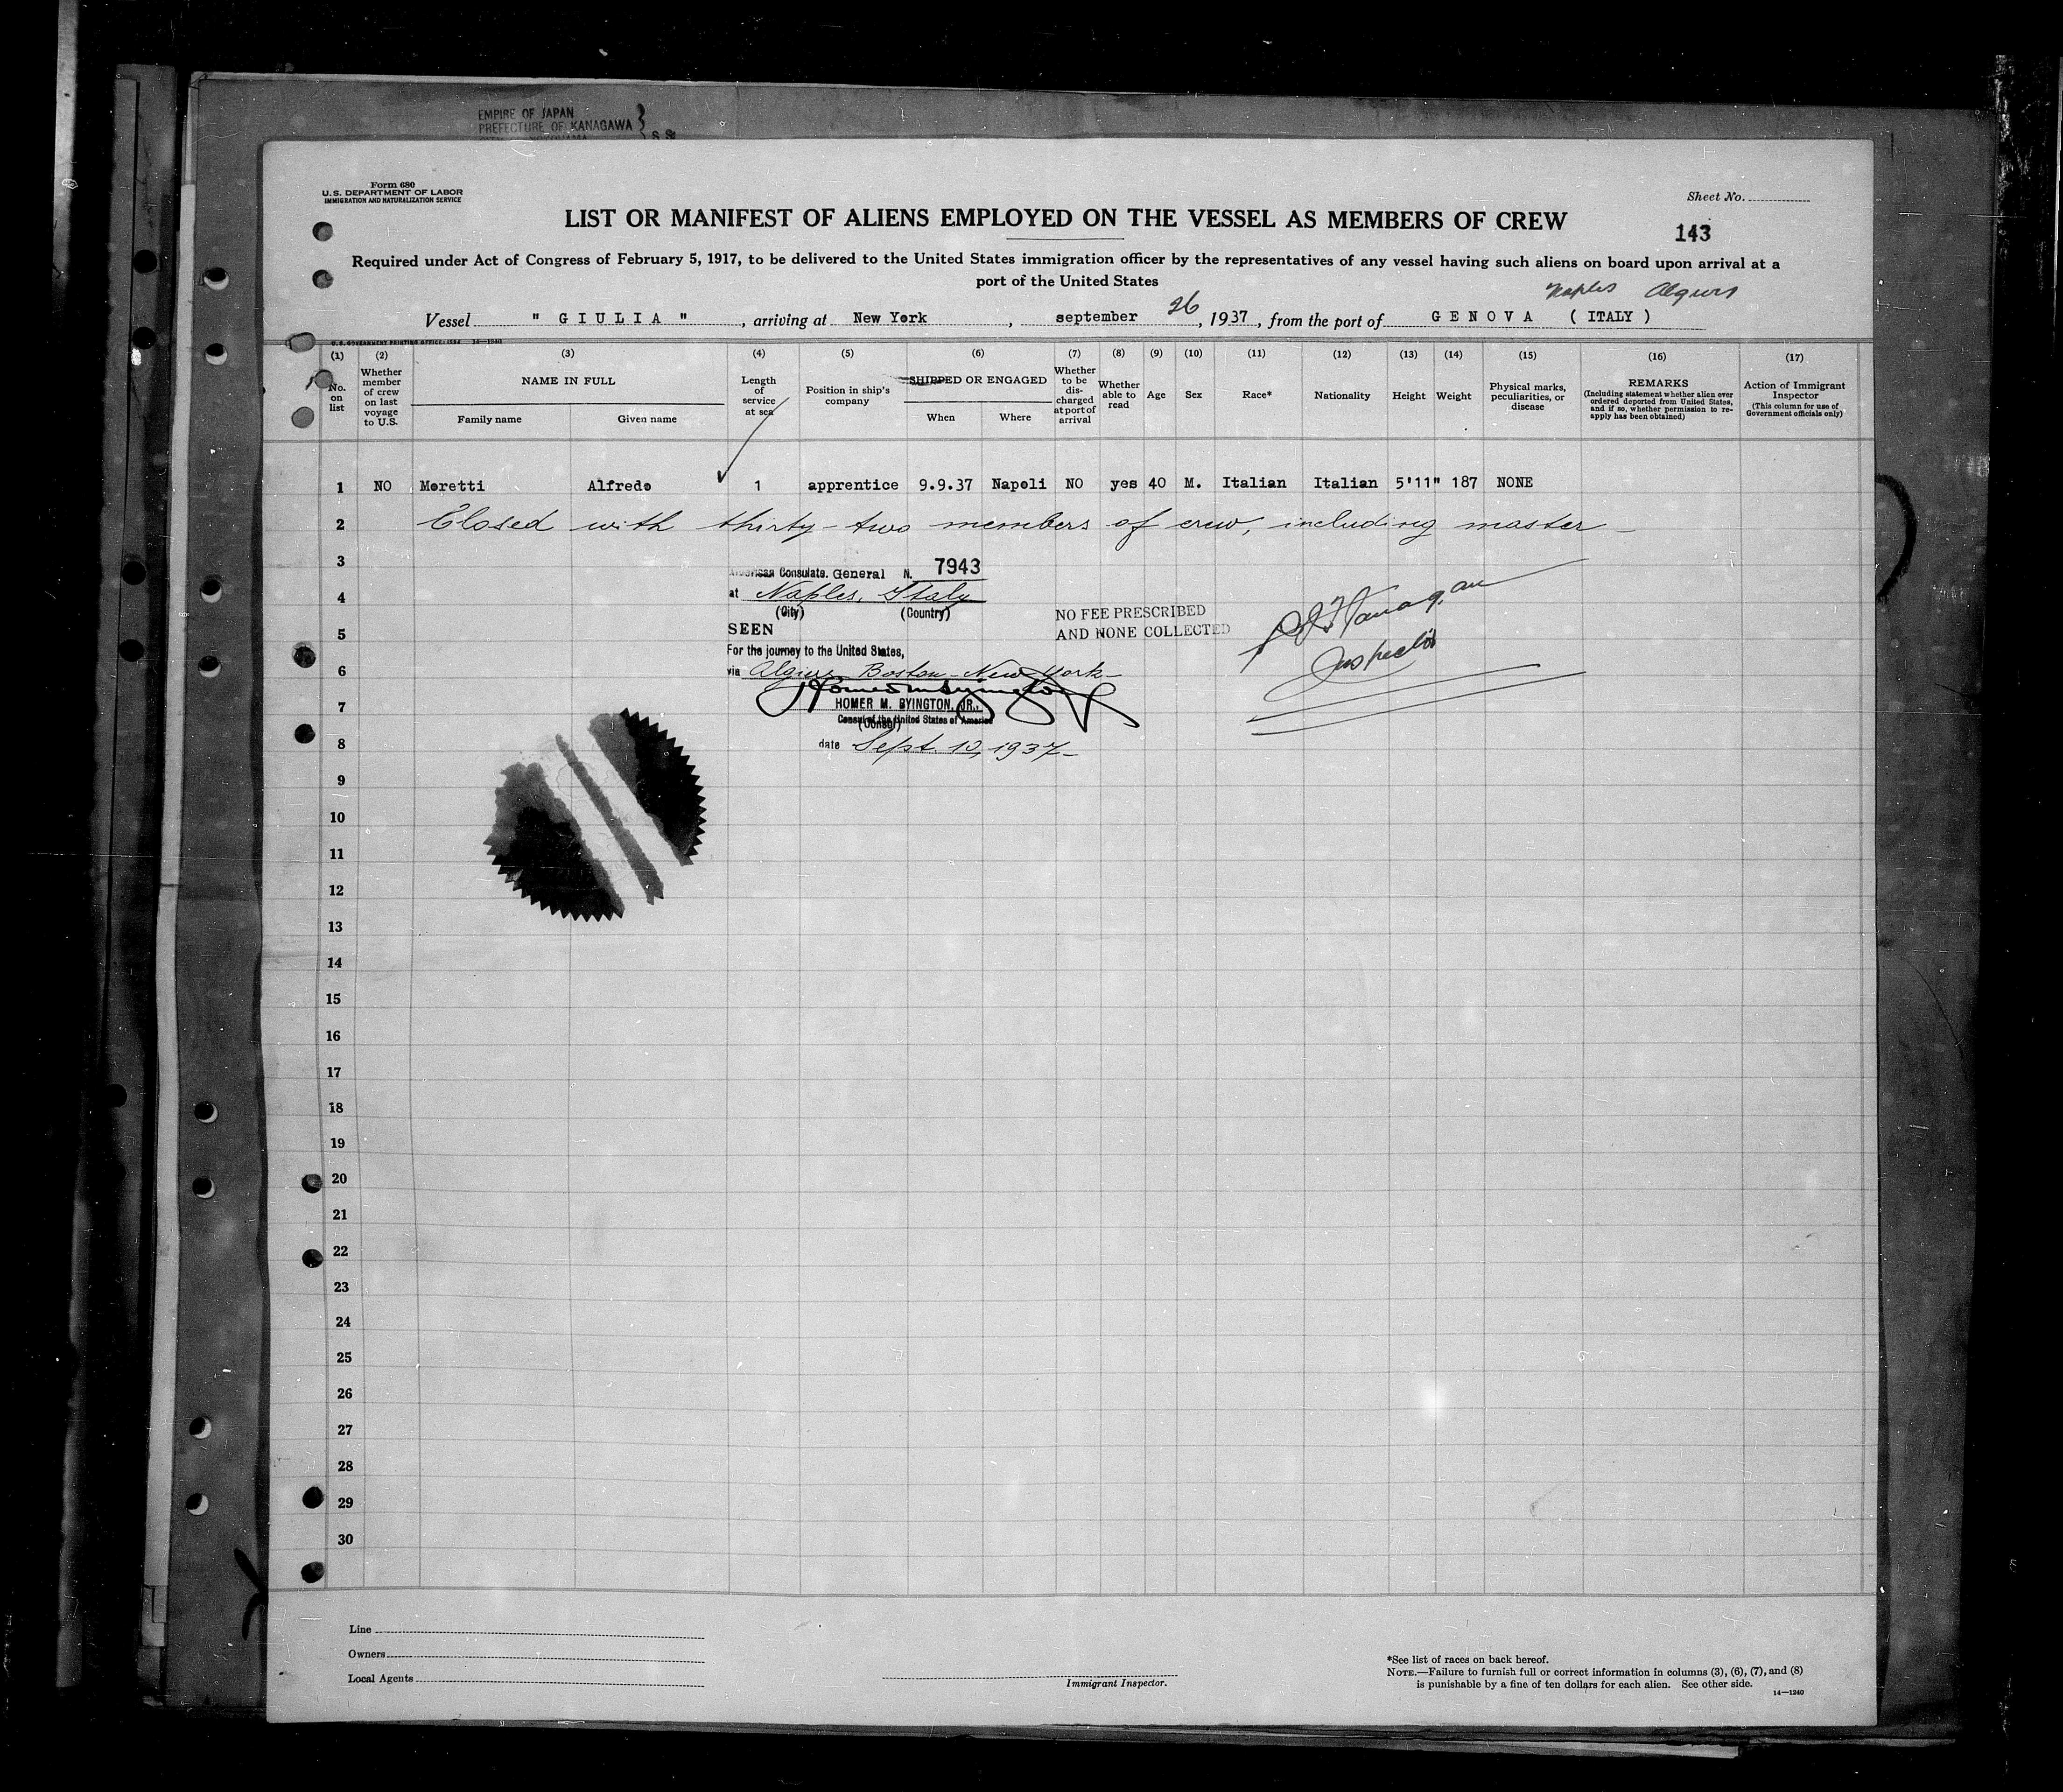 EMPIRE OF JAPAN
PREFECTURE OF KANAGAWA
S S
Form 680
U.S. DEPARTMENT OF LABOR
IMMIGRATION AND NATURALIZATION SERVICE
Sheet No.
LIST OR MANIFEST OF ALIENS EMPLOYED ON THE VESSEL AS MEMBERS OF CREW
143
Required under Act of Congress of February 5, 1917, to be delivered to the United States immigration officer by the representatives of any vessel having such aliens on board upon arrival at a
port of the United States
Naples Algiers
Vessel " GIULIA ", arriving at New York, september 26, 1937, from the port of GENOVA ( ITALY )
U.S. GOVERNMENT PRINTING OFFICE: 1934 14—1240
(1) (2) (3) (4) (5) (6) (7) (8) (9) (10) (11) (12) (13) (14) (15) (16) (17)
No. on list
Whether member of crew on last voyage to U.S.
NAME IN FULL
Family name Given name
Length of service at sea
Position in ship's company
SHIPPED OR ENGAGED
When Where
Whether to be discharged at port of arrival
Whether able to read
Age
Sex
Race*
Nationality
Height
Weight
Physical marks, peculiarities, or disease
REMARKS
(Including statement whether alien ever ordered deported from United States, and if so, whether permission to reapply has been obtained)
Action of Immigrant Inspector
(This column for use of Government officials only)
1 NO Moretti Alfredo 1 apprentice 9.9.37 Napoli NO yes 40 M. Italian Italian 5'11" 187 NONE
2 Closed with thirty-two members of crew, including master
3
American Consulate. General N. 7943
4
at Naples, Italy
(City) (Country)
NO FEE PRESCRIBED
AND NONE COLLECTED
5
SEEN
For the journey to the United States,
Inspector
6
via Algiers Boston - New York
7
HOMER M. BYINGTON, JR.,
Consul of the United States of America
(Consul)
8
date Sept. 10, 1937
9
10
11
12
13
14
15
16
17
18
19
20
21
22
23
24
25
26
27
28
29
30
Line
Owners
Local Agents
Immigrant Inspector.
*See list of races on back hereof.
NOTE.—Failure to furnish full or correct information in columns (3), (6), (7), and (8)
is punishable by a fine of ten dollars for each alien. See other side.
14—1240